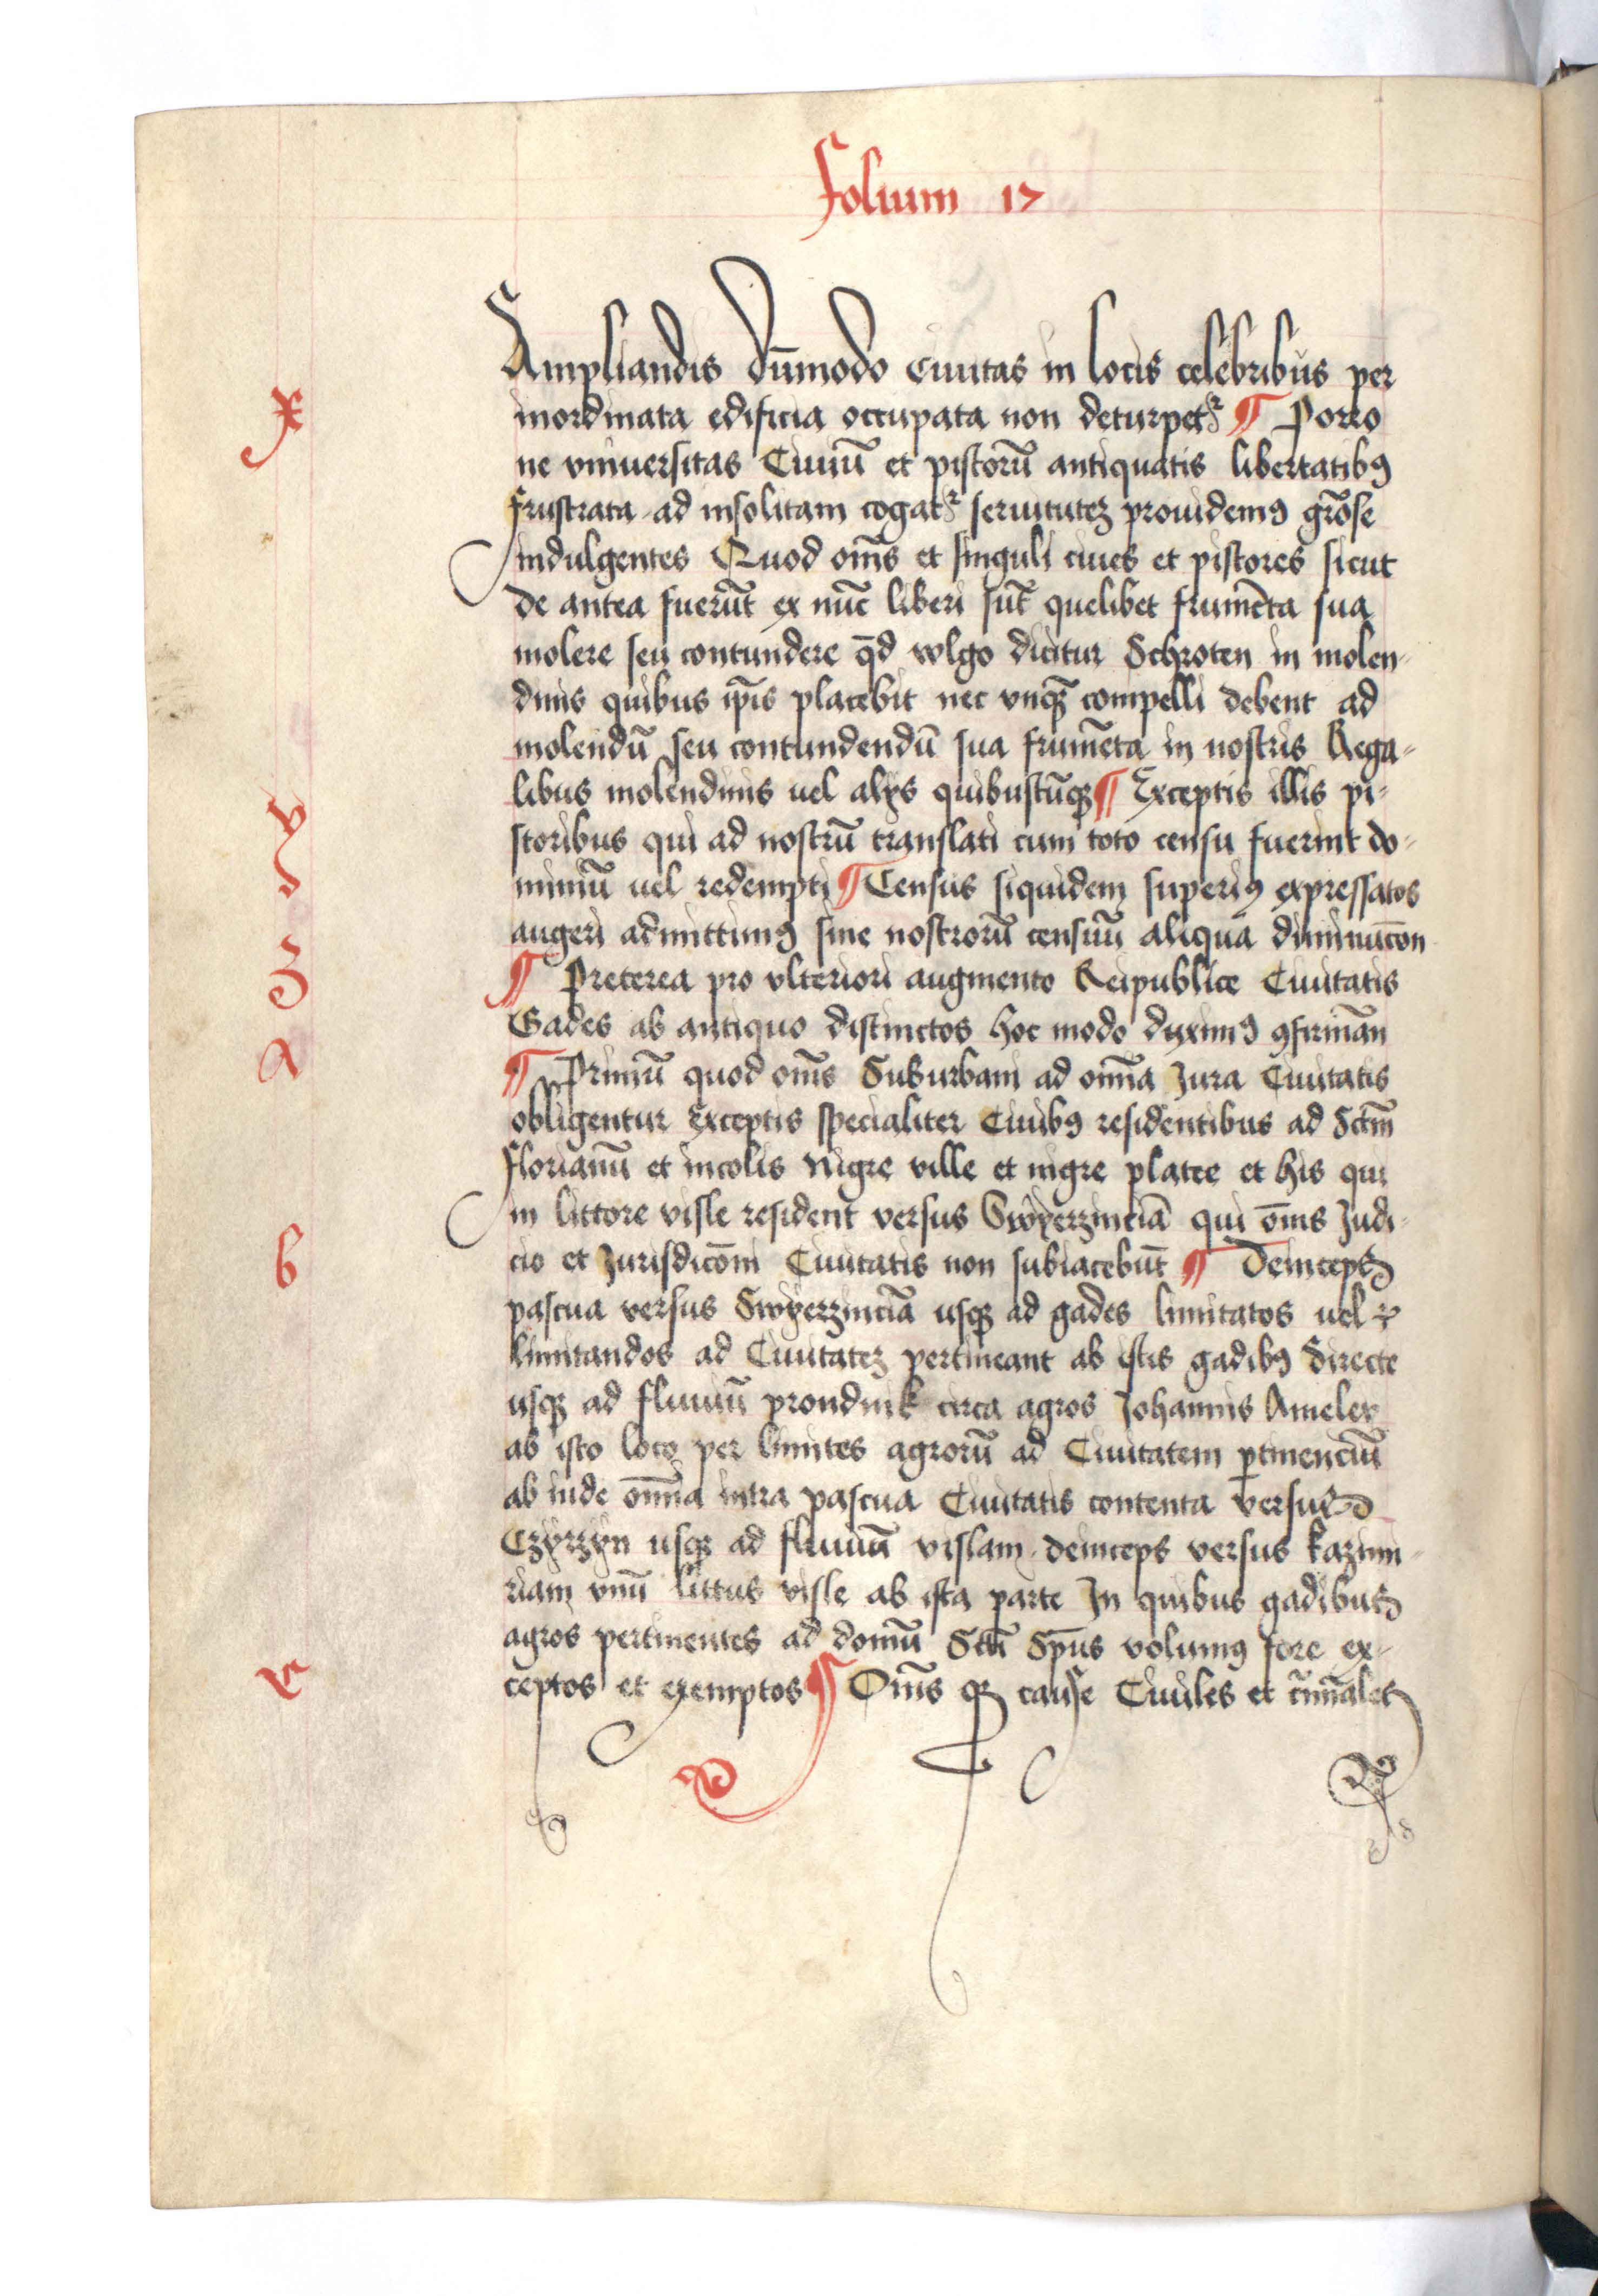 Folium 17
Ampliandis dūmodo ciuitas in locis celebribus per
x
inordinata edificia occupata non deturpetꝛ ¶ Porro
ne vniuersitas Ciuiū et pistorū antiquatis libertatibꝰ
frustrata ad insolitam cogatꝛ seruitutez prouidemꝰ grōse
indulgentes Quod om̄s et singuli ciues et pistores sicut
de antea fuerūt ex nūc liberi sūt quelibet frumēta sua
molere seu contundere qđ wlgo dicitur Schroten in molen-
dinis quibus ip̄is placebit nec vnqꝫ compelli debent ad
molendū seu contundendū sua frumēta in nostris Rega-
libus molendinis uel alijs quibuscūqꝫ ¶ Exceptis illis pi-
y
storibus qui ad nostrū translati cum toto censu fuerint do-
miniū uel redempti ¶ Census siquidem superiꝰ expressatos
augeri admittimꝰ sine nostrorū censuū aliqua diminucōn
z
¶ Preterea pro vlteriori augmento Reipublice Ciuitatis
Gades ab antiquo distinctos hoc modo duximꝰ ꝯfirman̄
a
¶ Primū quod om̄s Suburbani ad om̄ia Jura Ciuitatis
obligentur Exceptis specialiter Ciuibꝰ residentibus ad Sctm̄
Florianū et incolis Nigre ville et nigre platee et his qui
in littore visle resident versus Swyerzinciā qui om̄s Judi-
b
cio et Jurisdicōni Ciuitatis non subiacebūt ¶ Deinceps
pascua versus Swyerzinciā usqꝫ ad gades limitatos uel
limitandos ad Ciuitatez pertineant ab istis gadibꝰ directe
usqꝫ ad fluuiū prondnik circa agros Johannis Ameley
ab isto loco per limites agrorū ad Ciuitatem ꝑtinenciū
ab inde om̄ia intra pascua Ciuitatis contenta versus
Czyrzyn usqꝫ ad fluuiū vislam deinceps versus kazimi-
riam vnū littus visle ab ista parte In quibus gadibus
agros pertinentes ad domū Scti Sp̄us volumꝰ fore ex-
c
ceptos et exemptos ¶ Om̄s qꝫ cause Ciuiles et cīminales